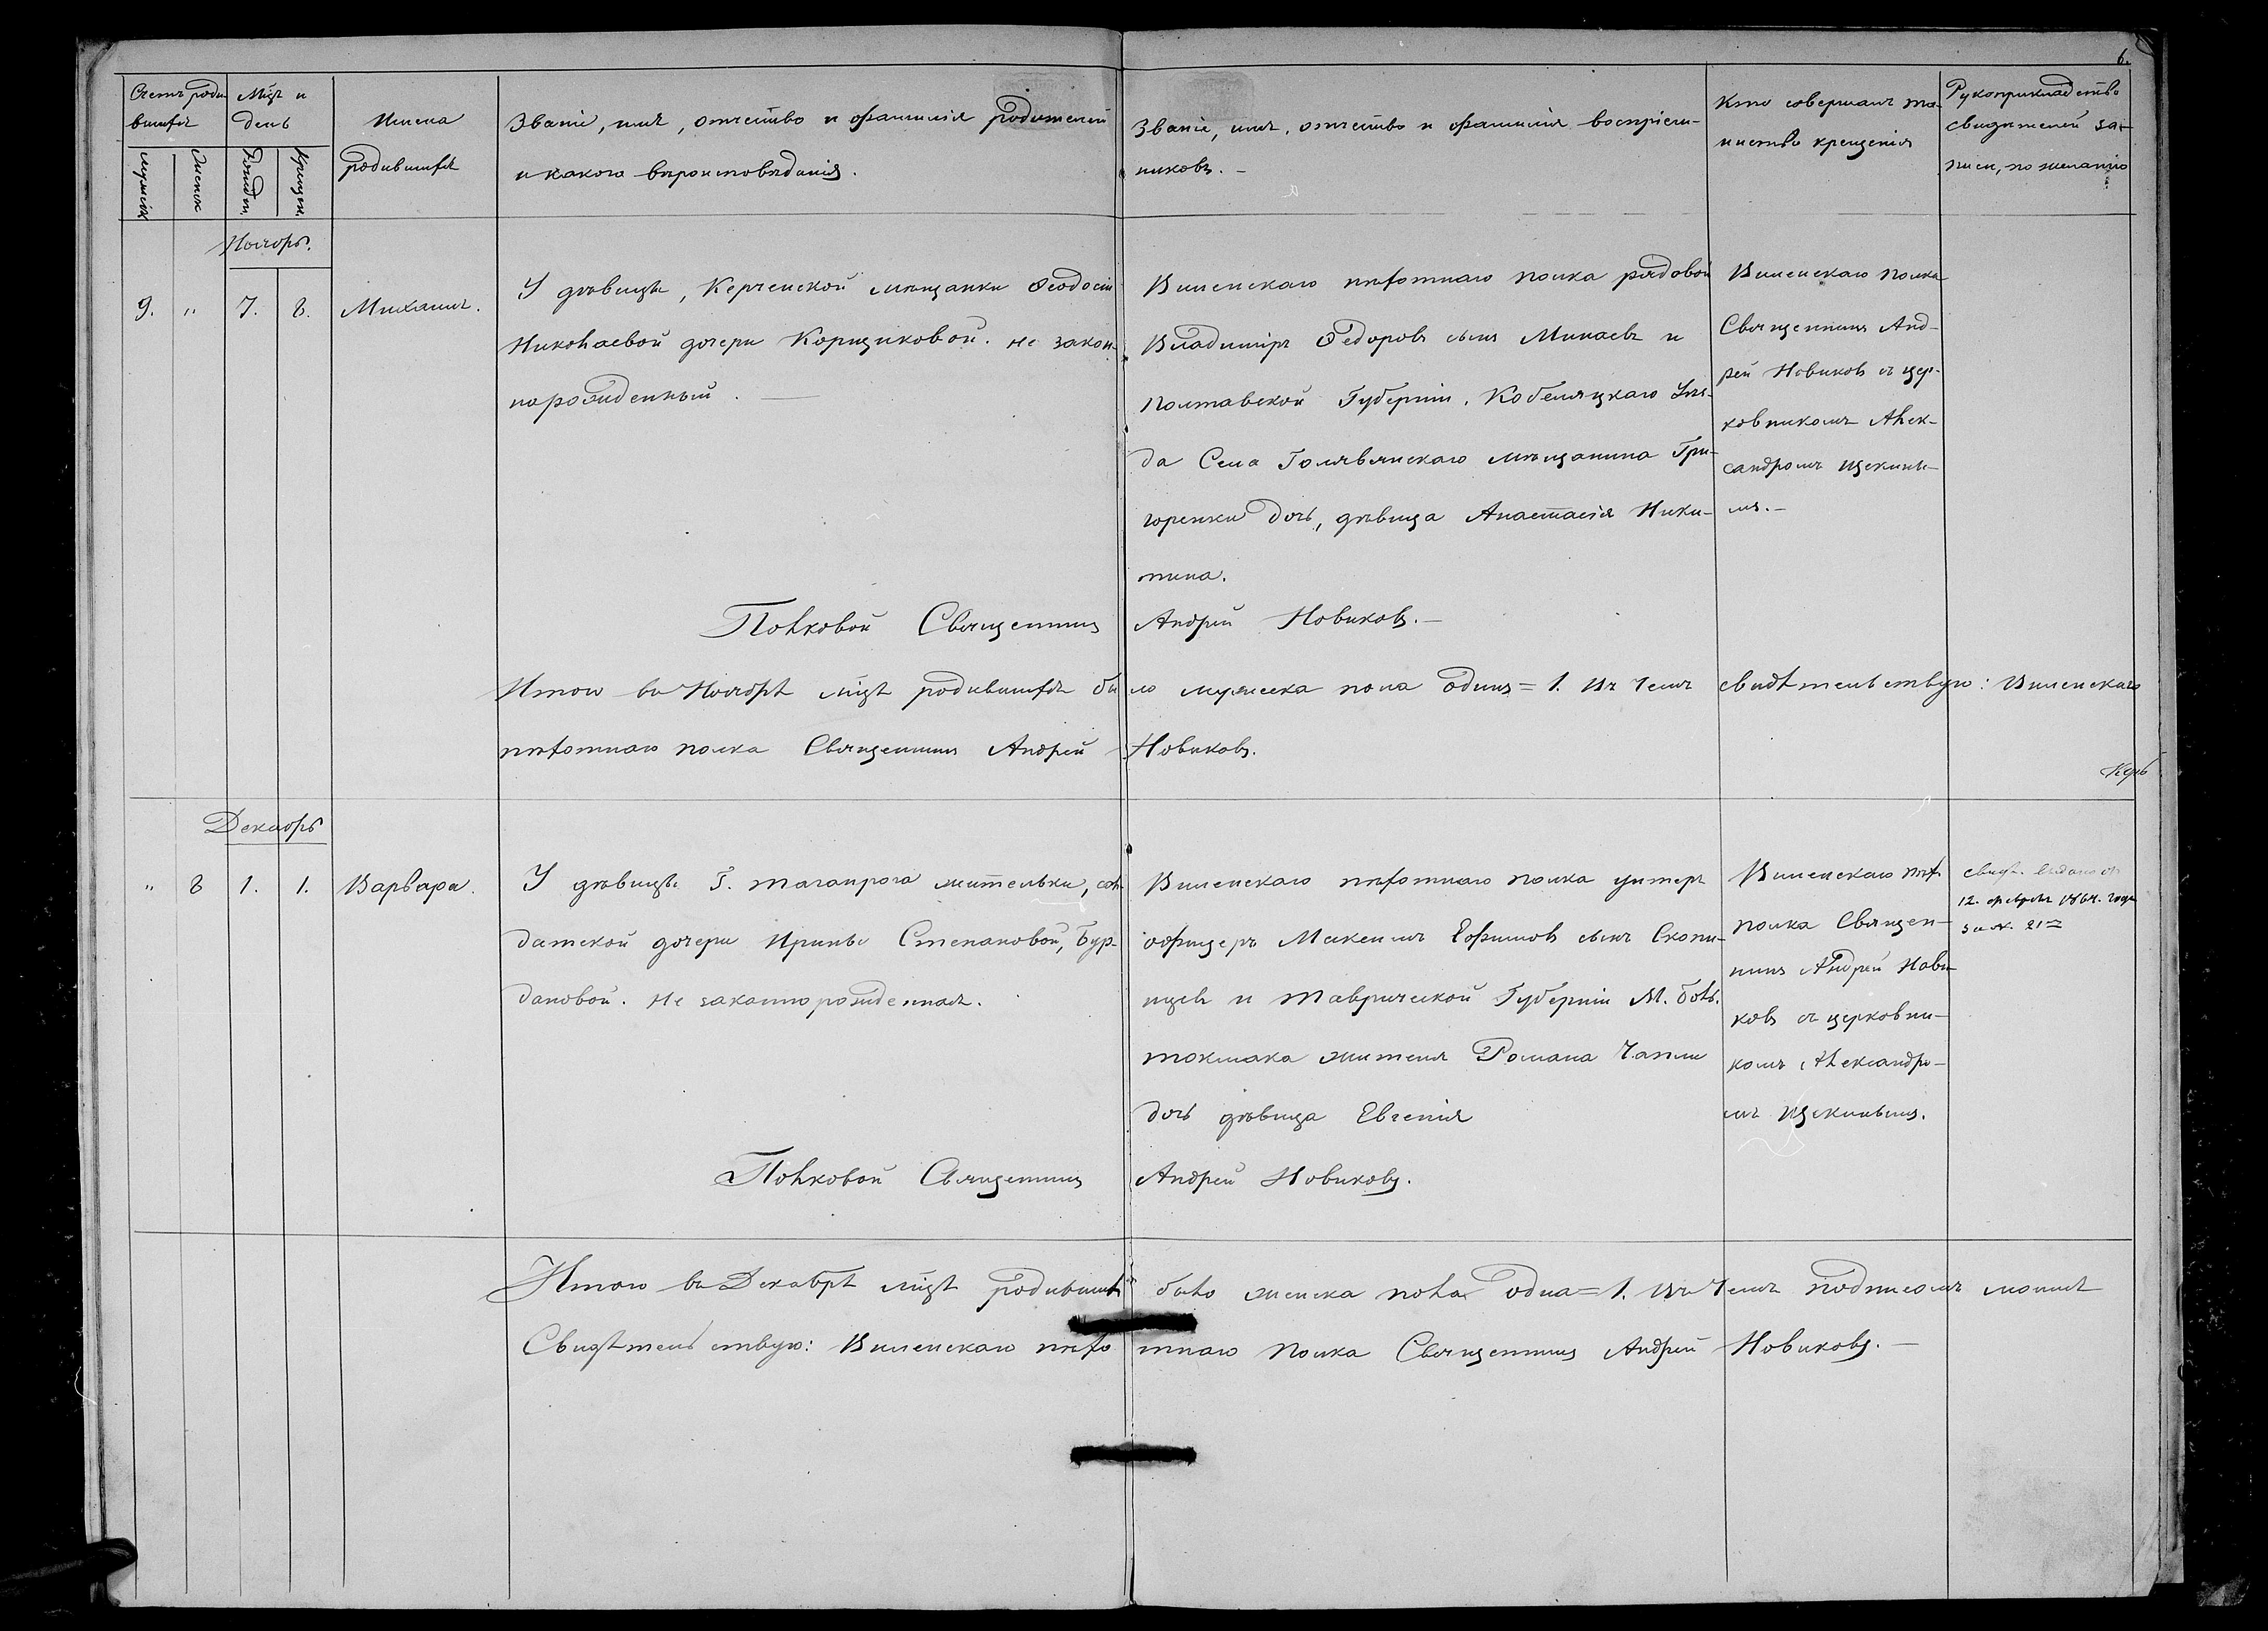 6.
Счетъ роди-
вшихся
мужск.
женск.
Мѣцъ и
день
Рожден.
Крещен.
Имена
родившихся
Званіе, имя, отчество и фамилія родителей
и какого вѣроисповѣданія.
Званіе, имя, отчество и фамилія воспріем-
никовъ. —
Кто совершалъ та-
инство крещенія
Рукоприкладство
свидѣтелей за-
писи, по желанію
Ноябрь.
9. " 7. 8. Михаилъ.
У дѣвицы, Керченской мѣщанки Ѳеодосіи
Николаевой дочери Корщиковой. не закон-
норожденный. —
Виленскаго пѣхотнаго полка рядовой
Владиміръ Ѳедоровъ сынъ Минаевъ и
Полтавской Губерніи, Кобеляцкаго Уѣз-
да Села мѣщанина Гри-
горенки дочь, дѣвица Анастасія Ники-
тина.
Виленскаго полка
Священникъ Анд-
рей Новиковъ съ цер-
ковникомъ Алек-
сандромъ Щекины-
мъ. —
Полковой Священникъ Андрей Новиковъ. —
Итого въ Ноябрѣ мѣцѣ родившихся бы ло мужеска пола одинъ = 1. Въ чемъ свидѣтельствую: Виленскаго
пѣхотнаго полка Священникъ Андрей Новиковъ.
Декабрь
" 8 1. 1. Варвара.
У дѣвицы Г. Таганрога жительки, сол-
датской дочери Ирины Степановой, Бур-
дановой. Не законнорожденная.
Виленскаго пѣхотнаго полка унтеръ
офицеръ Максимъ Ефимовъ сынъ Скопи-
нцевъ и Таврической Губерніи М. Боль.
токмака жителя Романа Чапли
дочь дѣвица Евгенія
Виленскаго пѣх.
полка Священ-
никъ Андрей Нови-
ковъ съ церковни-
комъ Александро-
мъ Щекинымъ.
свидѣ. выдано отъ
12. февраля 1864. года
за №. 21
Полковой Священникъ Андрей Новиковъ.
Итого въ Декабрѣ мѣцѣ родивших было женска пола одна = 1. Въ чемъ подписомъ моимъ
Свидѣтельствую: Виленскаго пѣхо тнаго Полка Священникъ Андрей Новиковъ. —